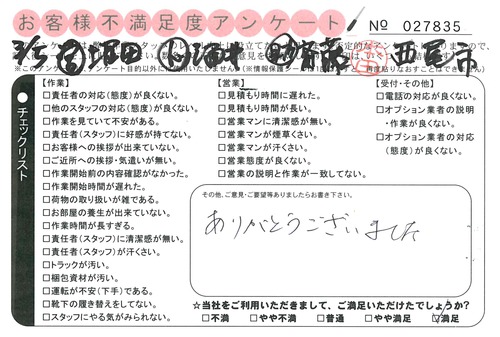 お客様不満足度アンケート
No 027835
3/5
西尾市
※このアンケートは
【作業】
□責任者の対応(態度)が良くない。
□他のスタッフの対応(態度)が良くない。
□作業を見ていて不安がある。
□責任者(スタッフ)に好感が持てない。
□お客様への挨拶が出来ていない。
□ご近所への挨拶・気遣いが無い。
□作業開始前の内容確認がなかった。
□作業開始時間が遅れた。
□荷物の取り扱いが雑である。
□お部屋の養生が出来ていない。
□作業時間が長すぎる。
□責任者(スタッフ)に清潔感が無い。
□責任者(スタッフ)が汗くさい。
□トラックが汚い。
□梱包資材が汚い。
□運転が不安(下手)である。
□靴下の履き替えをしてない。
□スタッフにやる気がみられない。
【営業】
□見積もり時間に遅れた。
□見積もり時間が長い。
□営業マンに清潔感が無い。
□営業マンが煙草くさい。
□営業マンが汗くさい。
□営業態度が良くない。
□営業の説明と作業が一致してない。
【受付・その他】
□電話の対応が良くない。
□オプション業者の説明
・作業が良くない。
□オプション業者の対応
(態度)が良くない。
●チェックリスト
その他、ご意見・ご要望等ありましたらお書き下さい。
ありがとうございました
☆当社をご利用いただきまして、ご満足いただけたでしょうか?
□不満 □やや不満 □普通 □やや満足 □満足